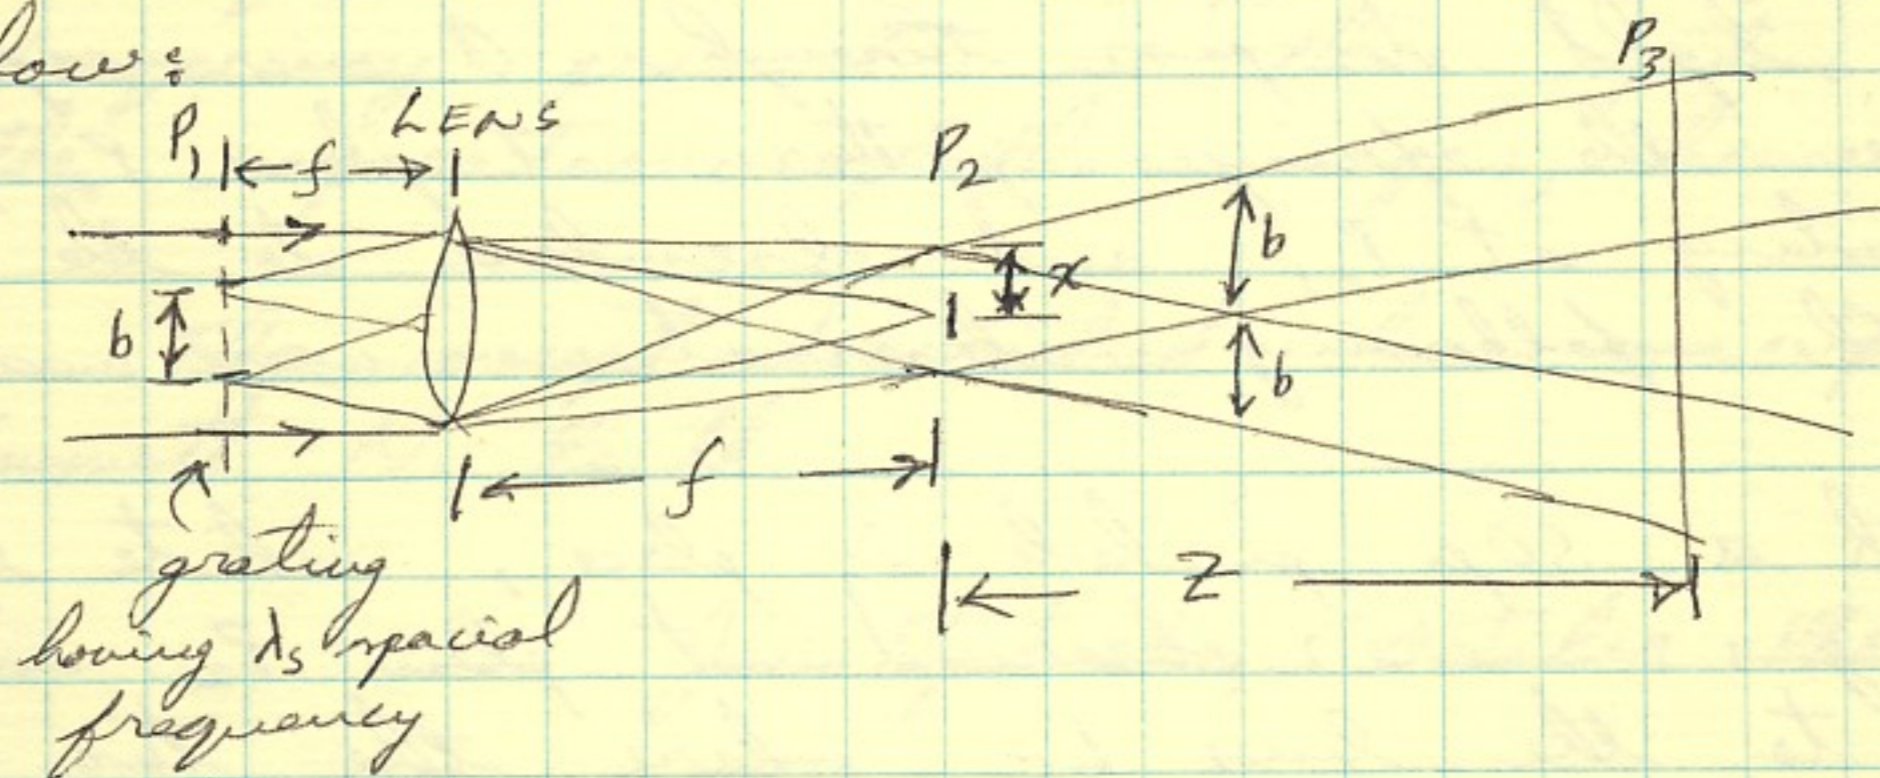 low:
P₁ f LENS
P₂
P₃
b
x
b
b
f
Z
grating
having λs spacial
frequency